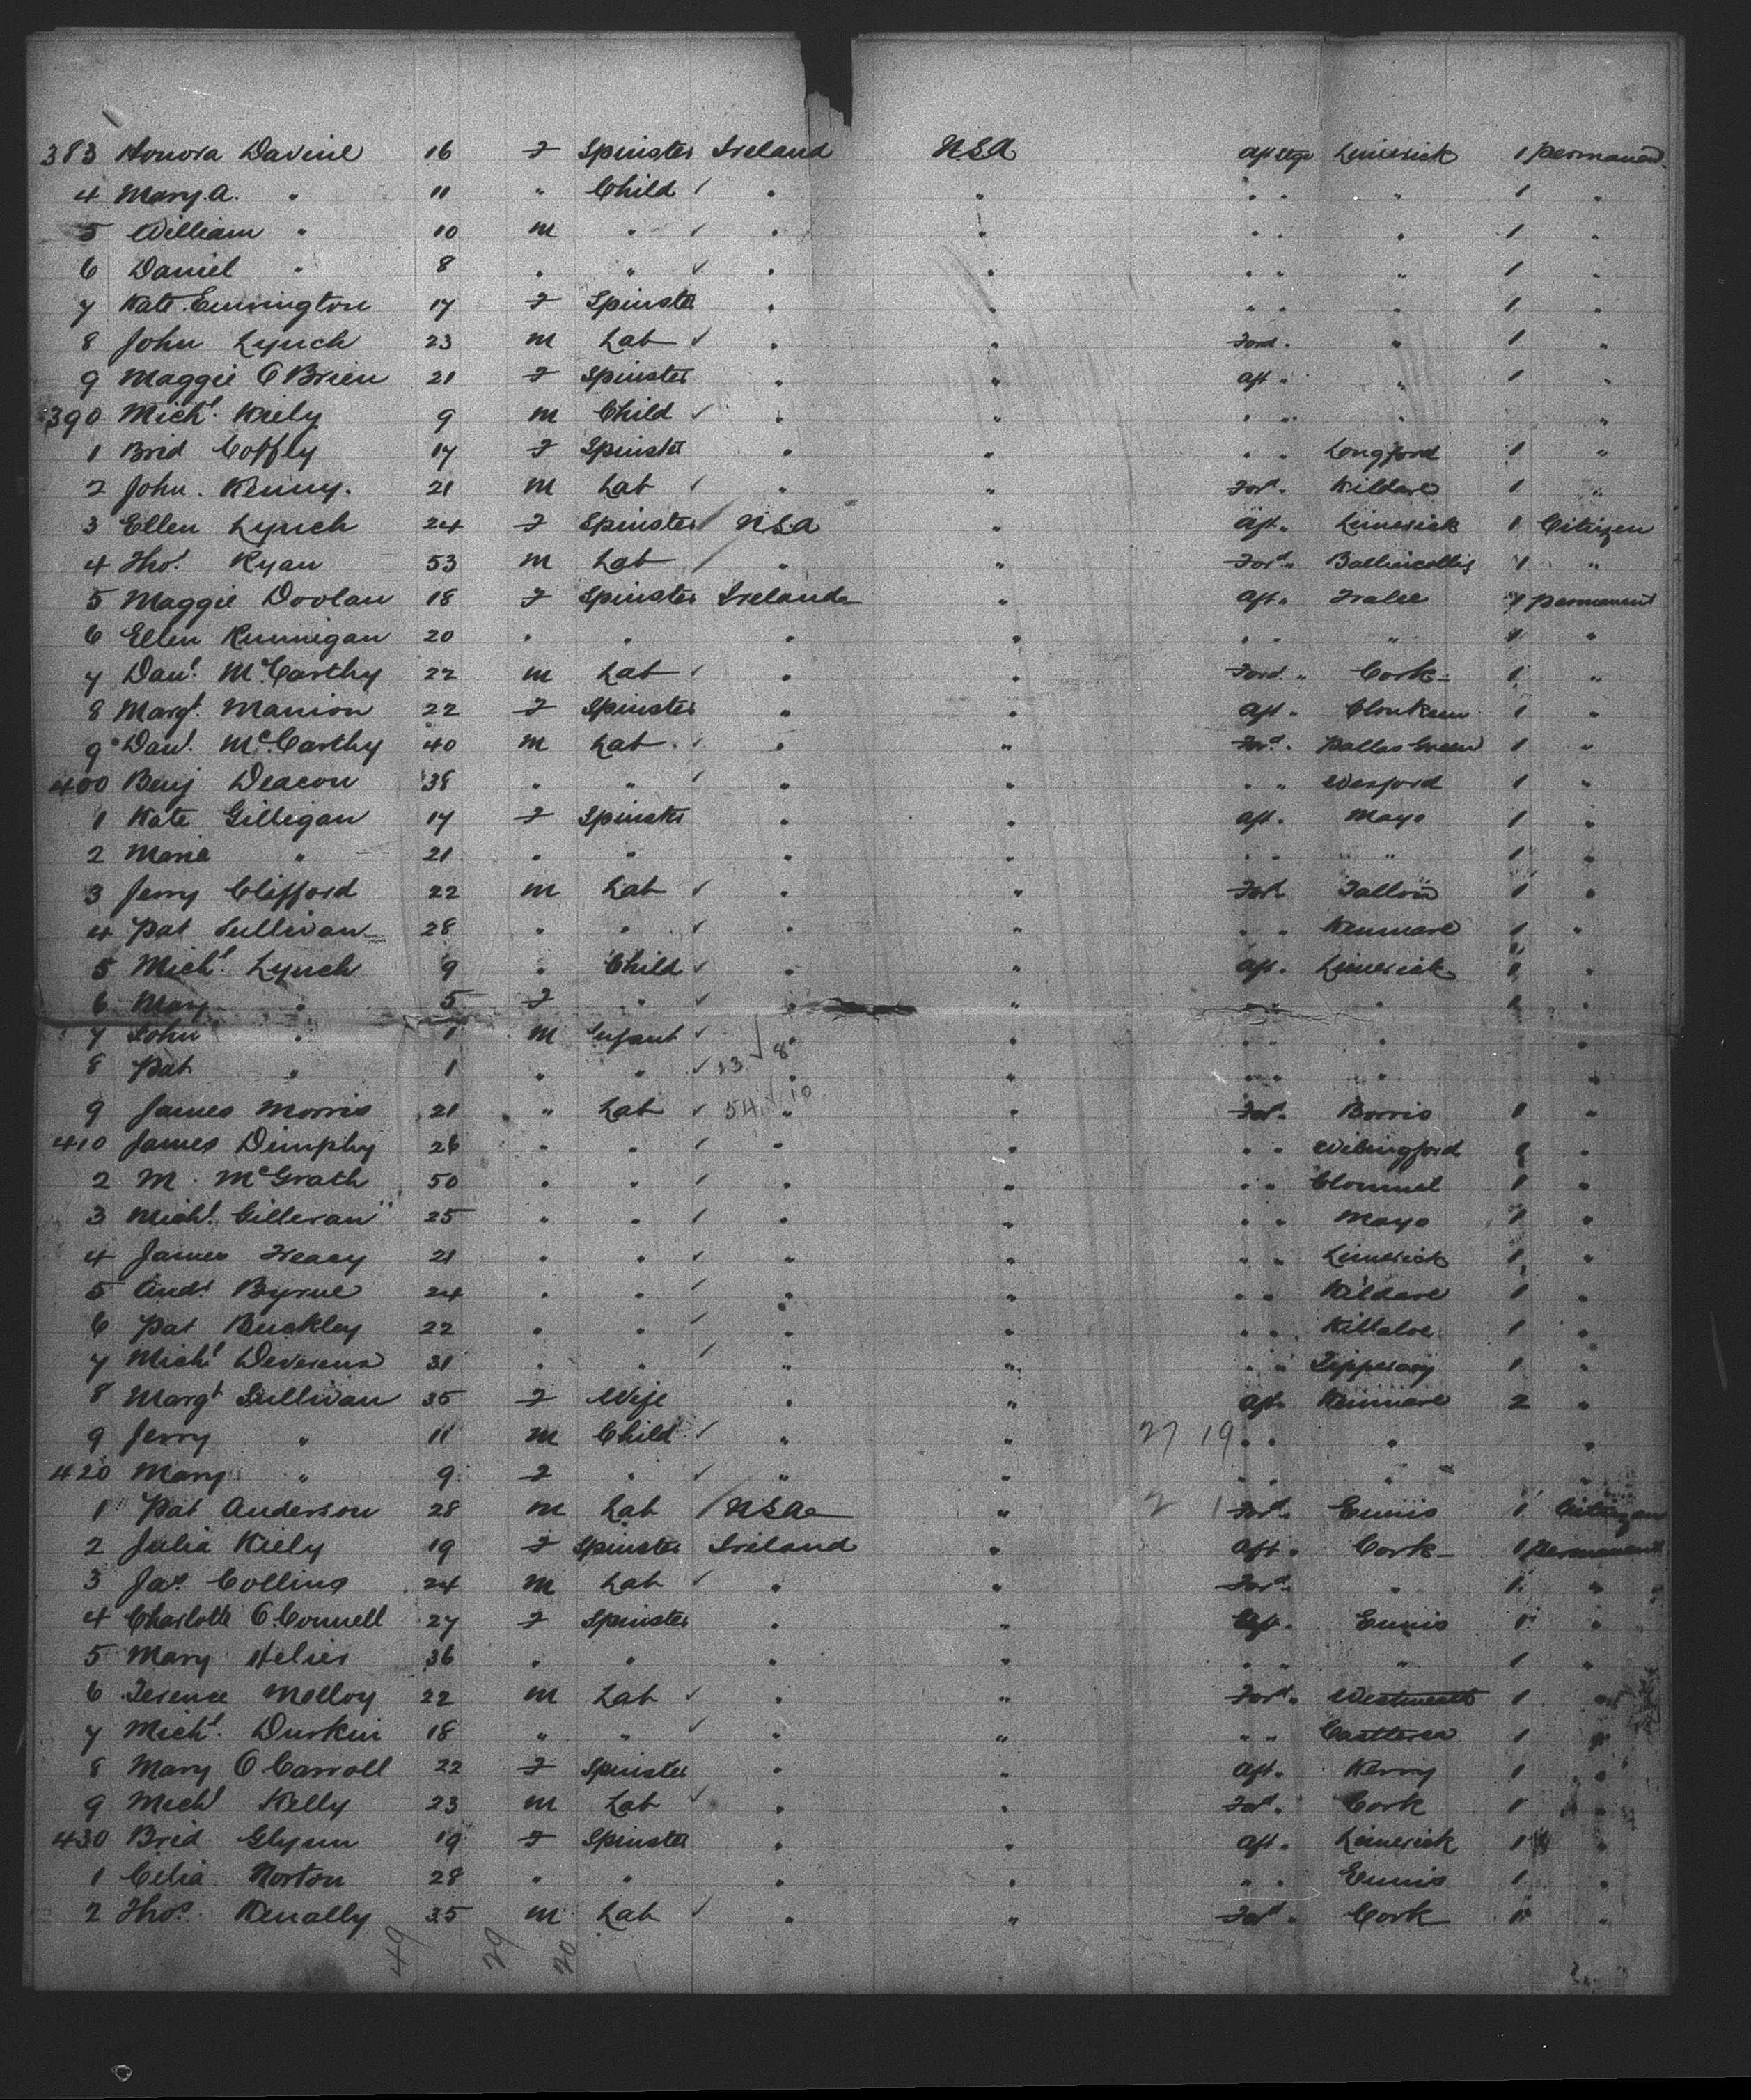 383 Honora Davine 16 F Spinster Ireland USA Aft Stge Limerick 1 permanent
4 Mary A. " 11 " Child ✓ " " " " " 1 "
5 William " 10 M " ✓ " " " " " 1 "
6 Daniel " 8 " " ✓ " " " " " 1 "
7 Kate Cunnington 17 F Spinster " " " " " 1 "
8 John Lynch 23 M Lab ✓ " " Ford " " 1 "
9 Maggie O'Brien 21 F Spinster " " Aft " " 1 "
390 Michl. Kiely 9 M Child ✓ " " " " " "
1 Brid Coffly 17 F Spinster " " " " Longford 1 "
2 John Kenny 21 M Lab ✓ " " Ford " Kildare 1 "
3 Ellen Lynch 24 F Spinster / USA " Aft " Limerick 1 Citizen
4 Thos. Ryan 53 M Lab / " " Ford " Ballincollig 1 "
5 Maggie Doolan 18 F Spinster Ireland " Aft " Tralee 1 permanent
6 Ellen 20 " " " " " " " 1 "
7 Danl. McCarthy 22 M Lab ✓ " " Ford " Cork 1 "
8 Margt. Manion 22 F Spinster " " Aft " Clonkeen 1 "
9 Danl. McCarthy 40 M Lab ✓ " " Ford " Pallas Green 1 "
400 Benj Deacon 38 " " ✓ " " " " Wexford 1 "
1 Kate Gilligan 17 F Spinster " " Aft " Mayo 1 "
2 Maria " 21 " " " " " " " 1 "
3 Jerry Clifford 22 M Lab ✓ " " Ford " Tallow 1 "
4 Pat Sullivan 28 " " ✓ " " " " Kenmare 1 "
5 Michl. Lynch 9 " Child ✓ " " Aft " Limerick 1 "
6 Mary " 5 F " ✓ " " " " " 1
7 John " 1 M Infant ✓ " " " " " "
8 Pat " 1 " " ✓ " " " " " "
9 James Morris 21 " Lab ✓ " " Ford " Borris 1 "
410 James Dimphy 26 " " ✓ " " " " 1 "
2 M. McGrath 50 " " ✓ " " " " Clonmel 1 "
3 Michl. Gilleran 25 " " ✓ " " " " Mayo 1 "
4 James Treacy 21 " " ✓ " " " " Limerick 1 "
5 Andw. Byrne 24 " " ✓ " " " " Kildare 1 "
6 Pat Buckley 22 " " ✓ " " " " Killaloe 1 "
7 Michl. Devereux 31 " " ✓ " " " " Tipperary 1 "
8 Margt Sullivan 35 F Wife " " Aft " Kenmare 2 "
9 Jerry " 11 M Child ✓ " " 27 19 " " " "
420 Mary " 9 F " ✓ " " " " " "
1 Pat Anderson 28 M Lab / USA " 2 1 Ford " Ennis 1 Citizen
2 Julia Kiely 19 F Spinster Ireland " Aft " Cork 1 permanent
3 Jas. Collins 24 M Lab ✓ " " Ford " " 1 "
4 Charlotte O'Connell 27 F Spinster " " Aft " Ennis 1 "
5 Mary Helier 36 " " " " " " " 1 "
6 Terence Molloy 22 M Lab ✓ " " Ford " Westmeath 1 "
7 Michl. Durkin 18 " " ✓ " " " " Castlerea 1 "
8 Mary O'Carroll 22 F Spinster " " Aft " Kerry 1 "
9 Michl Kelly 23 M Lab ✓ " " Ford " Cork 1 "
430 Brid Glynn 19 F Spinster " " Aft " Limerick 1 "
1 Celia Norton 28 " " " " " " Ennis 1 "
2 Thos. Kenally 35 M Lab ✓ " " Ford " Cork 1 "
49 29 20